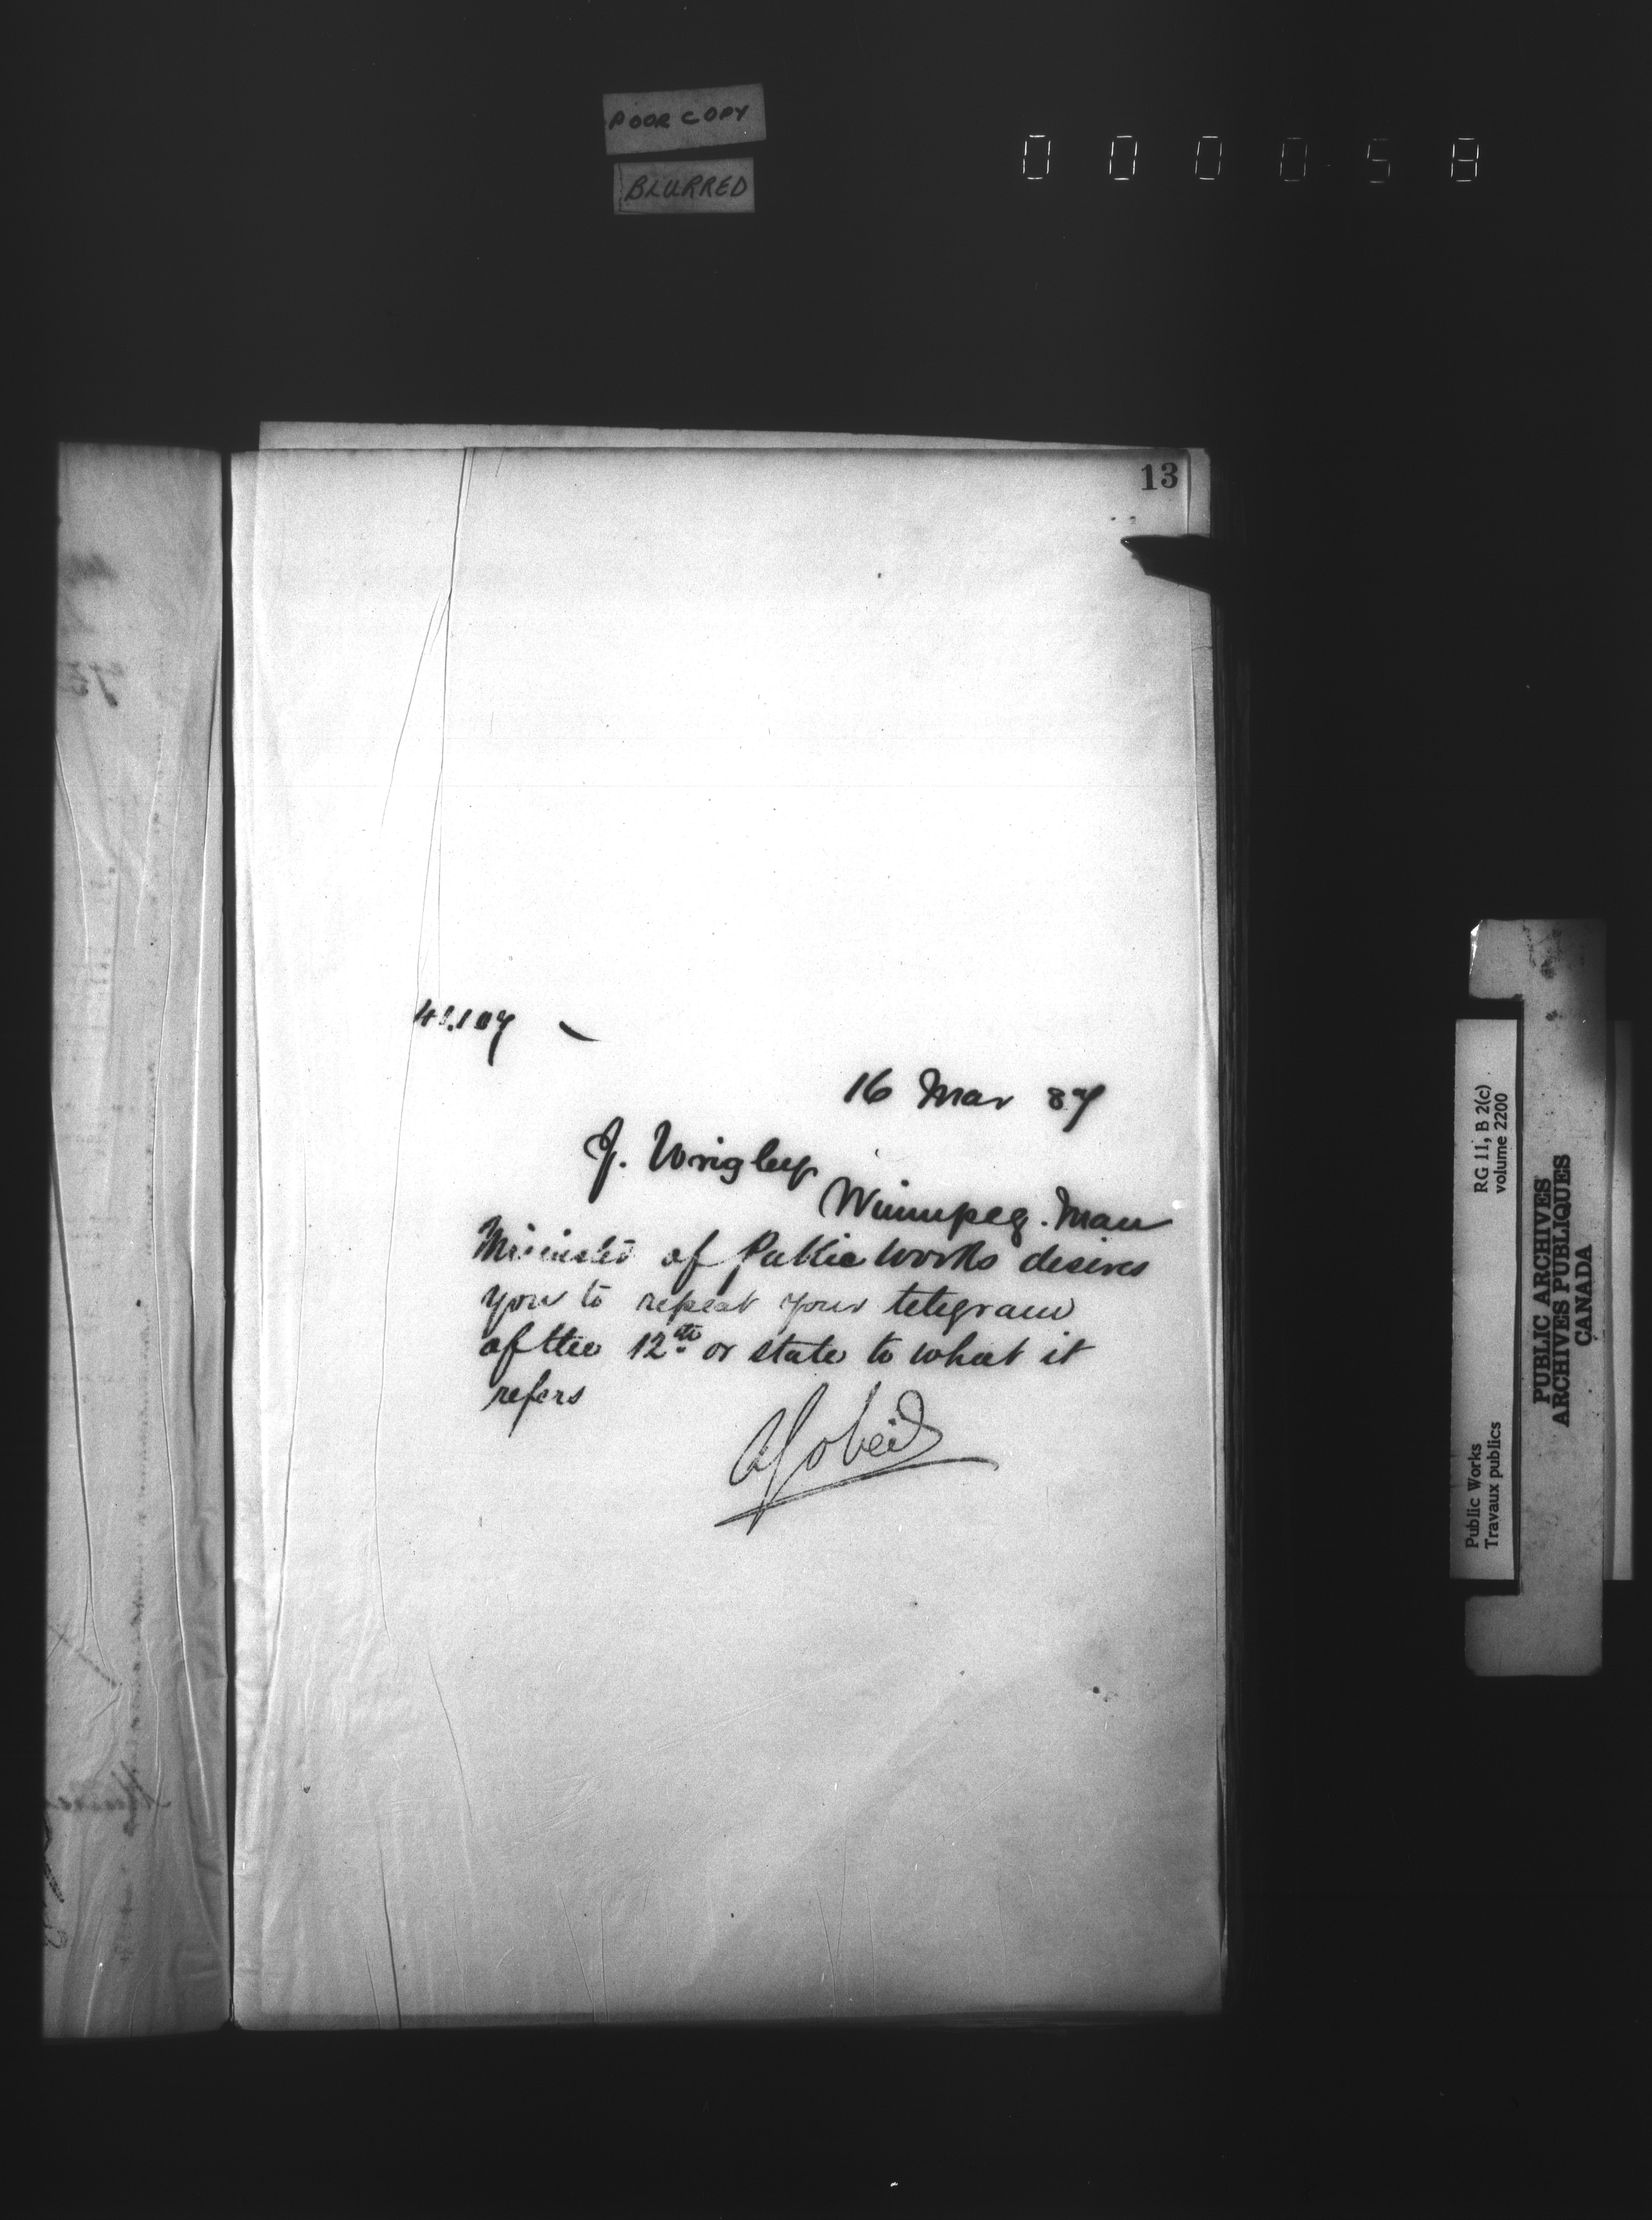 POOR COPY
BLURRED
0 0 0 0 5 8
13
16 Mar 87
J. Wrigley
Winnipeg. Man
Minister of Public Works desires
you to repeat your telegram
of the 12th or state to what it
refers
A Gobeil
Public Works
Travaux publics
RG 11, B 2(c)
volume 2200
PUBLIC ARCHIVES
ARCHIVES PUBLIQUES
CANADA